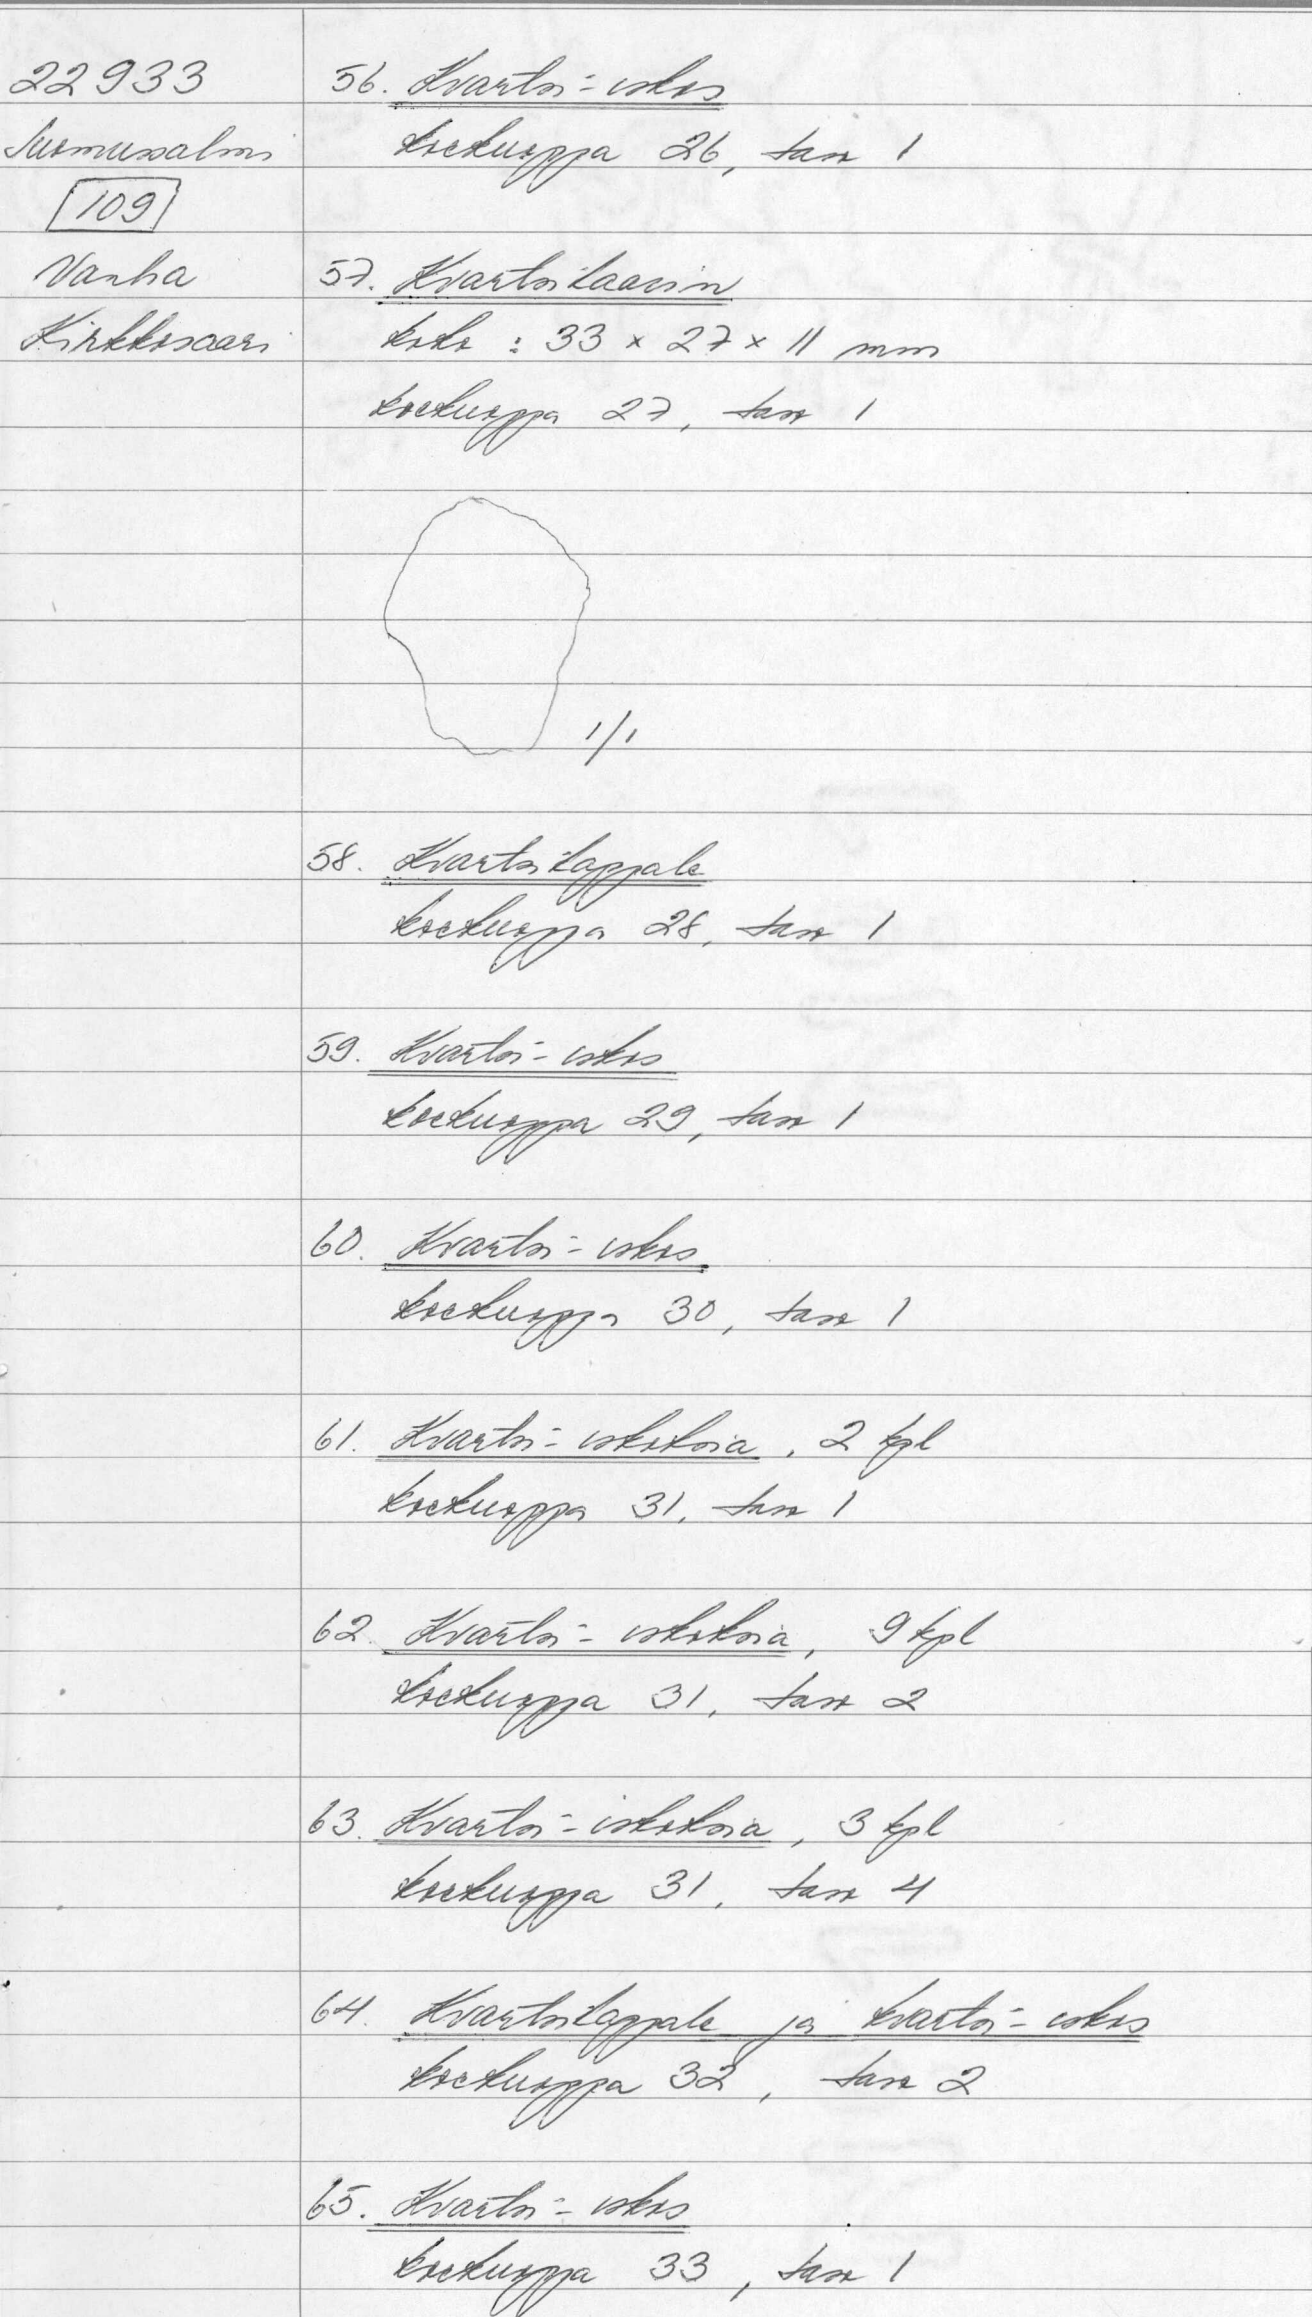 22933
Suomussalmi
109
Vanha
Kirkkosaari
56. Kvartsi-iskos
koekuoppa 26, taso 1
57. Kvartsikaavin
koko : 33 x 27 x 11 mm
koekuoppa 27, taso 1
1/1
58. Kvartsikappale
koekuoppa 28, taso 1
59. Kvartsi-iskos
koekuoppa 29, taso 1
60. Kvartsi-iskos
koekuoppa 30, taso 1
61. Kvartsi-iskoksia, 2 kpl
koekuoppa 31, taso 1
62. Kvartsi-iskoksia, 9 kpl
koekuoppa 31, taso 2
63. Kvartsi-iskoksia, 3 kpl
koekuoppa 31, taso 4
64. Kvartsikappale ja kvartsi-iskos
koekuoppa 32, taso 2
65. Kvartsi-iskos
koekuoppa 33, taso 1